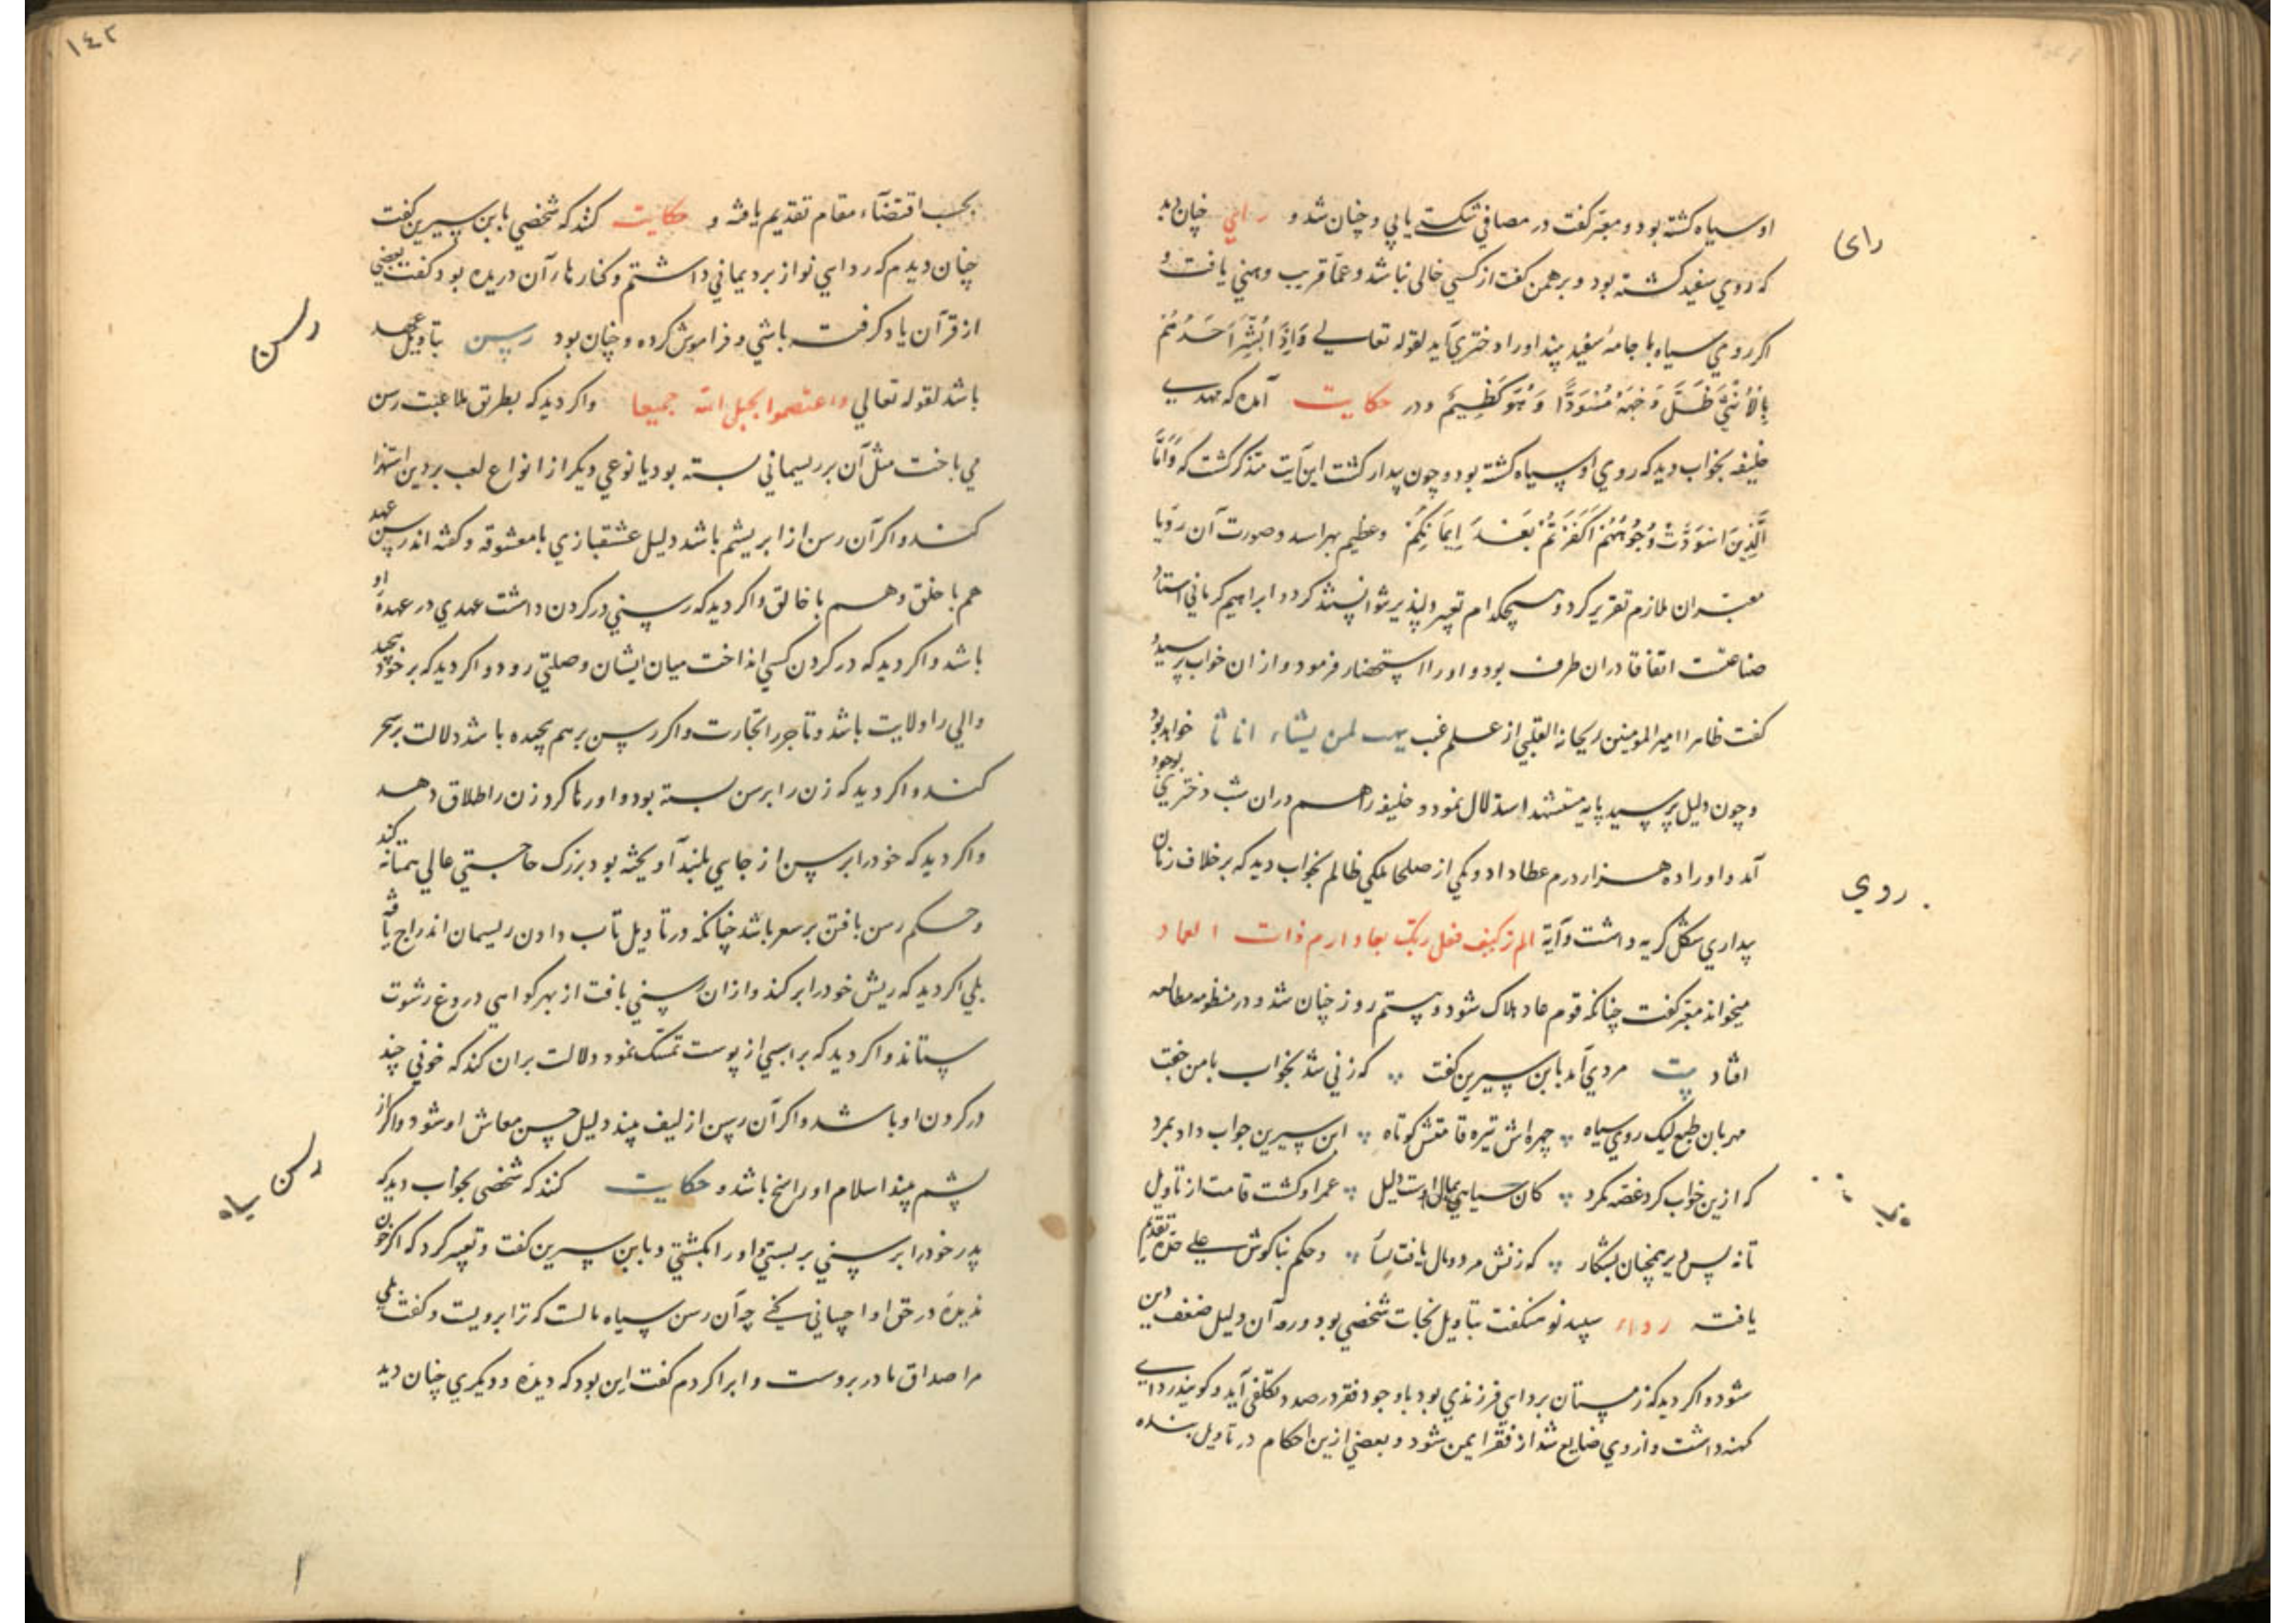 او سیاه کشته بود و معبّر کفت در مصافی شکست یابی و چنان شد و رائي چنان دید
که روي سفید کشته بود و برهمن کفت از کسي خالی نباشد و عمّا قریب وهني یافت و
اکر رومي سیاه با جامهٔ سفید بیند او را دختري آید لقوله تعالی وَاِذَا بُشِّرَ اَحَدُهُمْ
بِالْأُنْثَى ظَلَّ وَجْهُهُ مُسْوَدًّا وَهُوَ كَظِيمٌ و در حکایت آمده که مهدی
خلیفه بخواب دید که روي او سیاه کشته بود و چون بیدار کشت این آیت متذکر کشت که وَاَمَّا
الَّذِينَ اسْوَدَّتْ وُجُوهُهُمْ اَكَفَرْتُمْ بَعْدَ اِيمَانِكُمْ وعظیم بهراسد و صورت آن رؤیا
معبّران ملازم تقریر کرد و هیچکدام تعبیر دلپذیر نتوانستند کرد و ابراهیم کرماني استاد
صناعت اتفاقا دران طرف بود و او را استحضار فرمود و از ان خواب پرسید
کفت ظاهرا امیر المومنین ریحانة القلبي از علم غیب یهب لمن یشاء اناثا خواهد بود
و چون دلیل پرسید بآیه مستشهد استدلال نمود و خلیفه را هم دران شب دختري بوجود
آمد و او را ده هزار درم عطا داد و یکي از صلحا ملکي ظالم بخواب دید که بر خلاف زمان
بیداري شکل کریه داشت و آیهٔ الم تر کیف فعل ربک بعاد ارم ذات العماد
میخواند معبّر کفت چنانکه قوم عاد هلاک شود و بیستم روز چنان شد و در منظومه مطالعه
افتاد بیت مردي آمد بابن سیرین کفت که زني شد بخواب با من جفت
مهربان طبع لیک روي سیاه چهره اش تیره قامتش کوتاه ابن سیرین جواب داد بمرد
که ازین خواب کرد غصه مکرد کان سیاهي بمال اوست دلیل عمر او کشت قامت از تاویل
تا نه بس دیر همچنان بشکار که زنش مرد و مال یافت و حکم بناکوش علی حده تقدیم
یافته رداء سپید نو تتاویل نجات شخصي بود و رده آن دلیل ضعف دین
شود و اکر دید که زمستان برداي فرزندي بود با وجود فقر درصدد تکلفي آید و کویند رداي
کهنه داشت و از وي ضایع شد از فقر ایمن شود و بعضي ازین احکام در تاویل بنده
رای
روی
۱٤۲
بحسب اقتضاء مقام تقدیم یافته و حکایت کنند که شخصي با ابن سیرین کفت
چنان دیدم که رداي نو از برد یماني داشتم و کنارهاء آن دریده بود کفت بعضي
از قرآن یاد کرفته باشي و فراموش کرده و چنان بود رسن بتاویل عهد
باشد لقوله تعالي واعتصموا بحبل الله جمیعا و اکر دید که بطریق ملاعبت رسن
مي باخت مثل آن بر ریسماني بسته بود یا نوعي دیکر از انواع لعب بر دین استهزا
کند و اکر آن رسن از ابریشم باشد دلیل عشقبازي با معشوقه و کفته اند رسن عهد
هم با خلق و هم با خالق و اکر دید که رسني در کردن داشت عهدي در عهدهٔ او
باشد و اکر دید که در کردن کسي انداخت میان ایشان وصلتي رود و اکر دید که بر خود پیچید
والي را ولایت باشد و تاجر را تجارت و اکر رسن بر هم پیچیده باشد دلالت بر سحر
کند و اکر دید که زن را برسن بسته بود و او رها کرد زن را طلاق دهد
و اکر دید که خود را برسن از جایي بلند آویخته بود بزرک حاجتي عالي همتانه کند
و حکم رسن بافتن بر سفر باشد چنانکه در تاویل تاب دادن ریسمان اندراج یافته
بلي اکر دید که ریش خود را برکند و ازان رسني بافت از بهر کواهي دروغ رشوت
ستاند و اکر دید که براسي از پوست تمسک نمود دلالت بران کند که خوني چند
در کردن او باشد و اکر آن رسن از لیف بیند دلیل حسن معاش او شود و اکر از
پشم بیند اسلام او راسخ باشد و حکایت کنند که شخصي بخواب دید که
پدر خود را برسني بر بستي و او را بکشتي و با ابن سیرین کفت و تعبیر کرد که اکر چون
ندیدهٔ در حق او احساني کني چه آن رسن سیاه مالست که ترا برویست و کفت بلي
مرا صداق مادر بروست و ابرا کردم کفت این بود که دیدهٔ و دیکري چنان دید
رسن
رسن سیاه